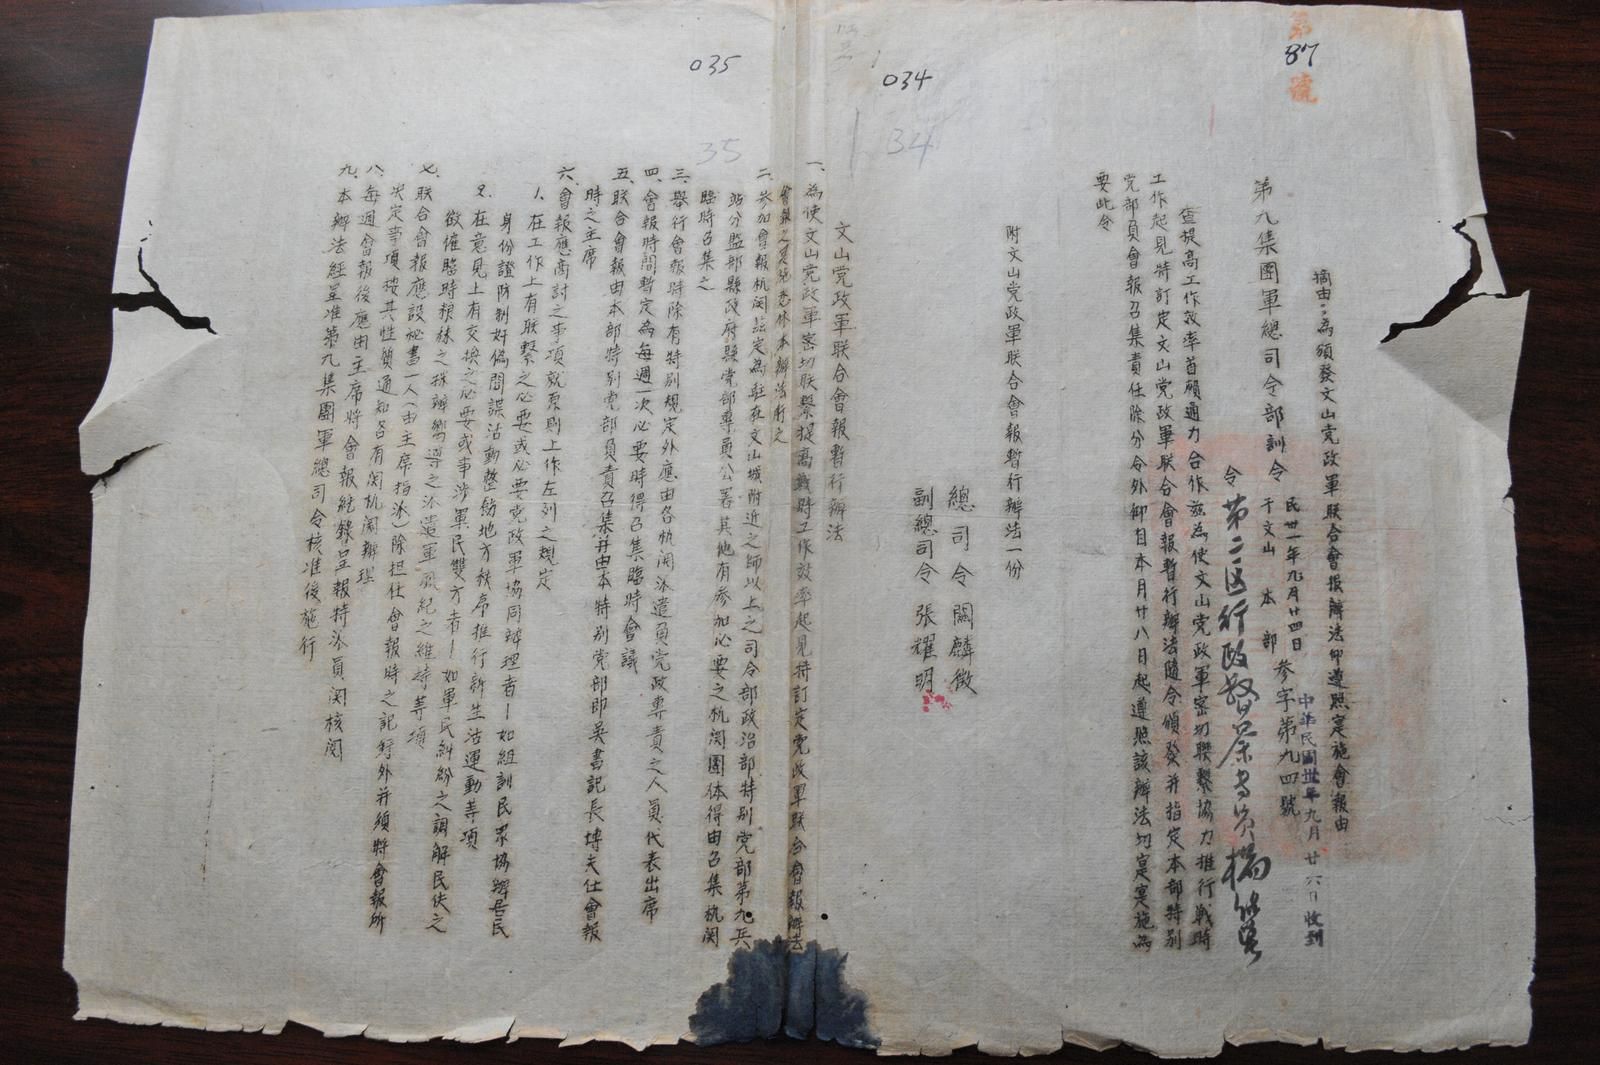 第
87
號
034
035
34
35
摘由：為頒發文山党政軍联合會报辦法仰遵照寔施會報由
中華民國卅一年九月廿六日收到
第九集團軍總司令部訓令
民卅一年九月廿四日
于文山本部
參字第九四號
令第二區行政督察專員楊
查提高工作效率首賴通力合作兹為使文山党政軍密切聯繫協力推行戰時
工作起見特訂定文山党政軍联合會報暫行辦法隨令頒發并指定本部特别
党部負會報召集責任除分令外仰自本月廿八日起遵照該辦法切寔寔施為
要此令
附文山党政軍联合會報暫行辦法一份
總司令關麟徵
副總司令張耀明
文山党政軍联合會報暫行辦法
一、為使文山党政軍密切联繫提高戰時工作效率起見特訂定党政軍联合會報辦法
會報之寔施悉依本辦法行之
二、參加會報机関茲定為駐在文山城附近之師以上之司令部政治部特别党部第九兵
站分監部縣政府縣党部專員公署其他有參加必要之机関團体得由召集机関
臨時召集之
三、舉行會報時除有特别規定外應由各机関派遣負党政專責之人員代表出席
四、會報時間暫定為每週一次必要時得召集臨時會議
五、联合會報由本部特别党部負責召集并由本特别党部即吳書記長博夫仕會報
時之主席
六、會報應商討之事項就原則上作左列之規定
1、在工作上有联繫之必要或必要党政軍協同辦理者—如組訓民眾協辦居民
身份證防制奸偽間諜活動整飭地方秩序推行新生活運動等項
2、在意見上有交换之必要或事涉軍民雙方者—如軍民糾紛之調解民伕之
欲催臨時粮秣之採辦嚮導之派遣軍風紀之維持等項
七、联合會報應設祕書一人（由主席指派）除担仕會報時之記錄外并須將會報所
决定事項按其性質通知各有関机関辦理
八、每週會報後應由主席將會報紀錄呈報特派員関核閱
九、本辦法經呈准第九集團軍總司令核准後施行